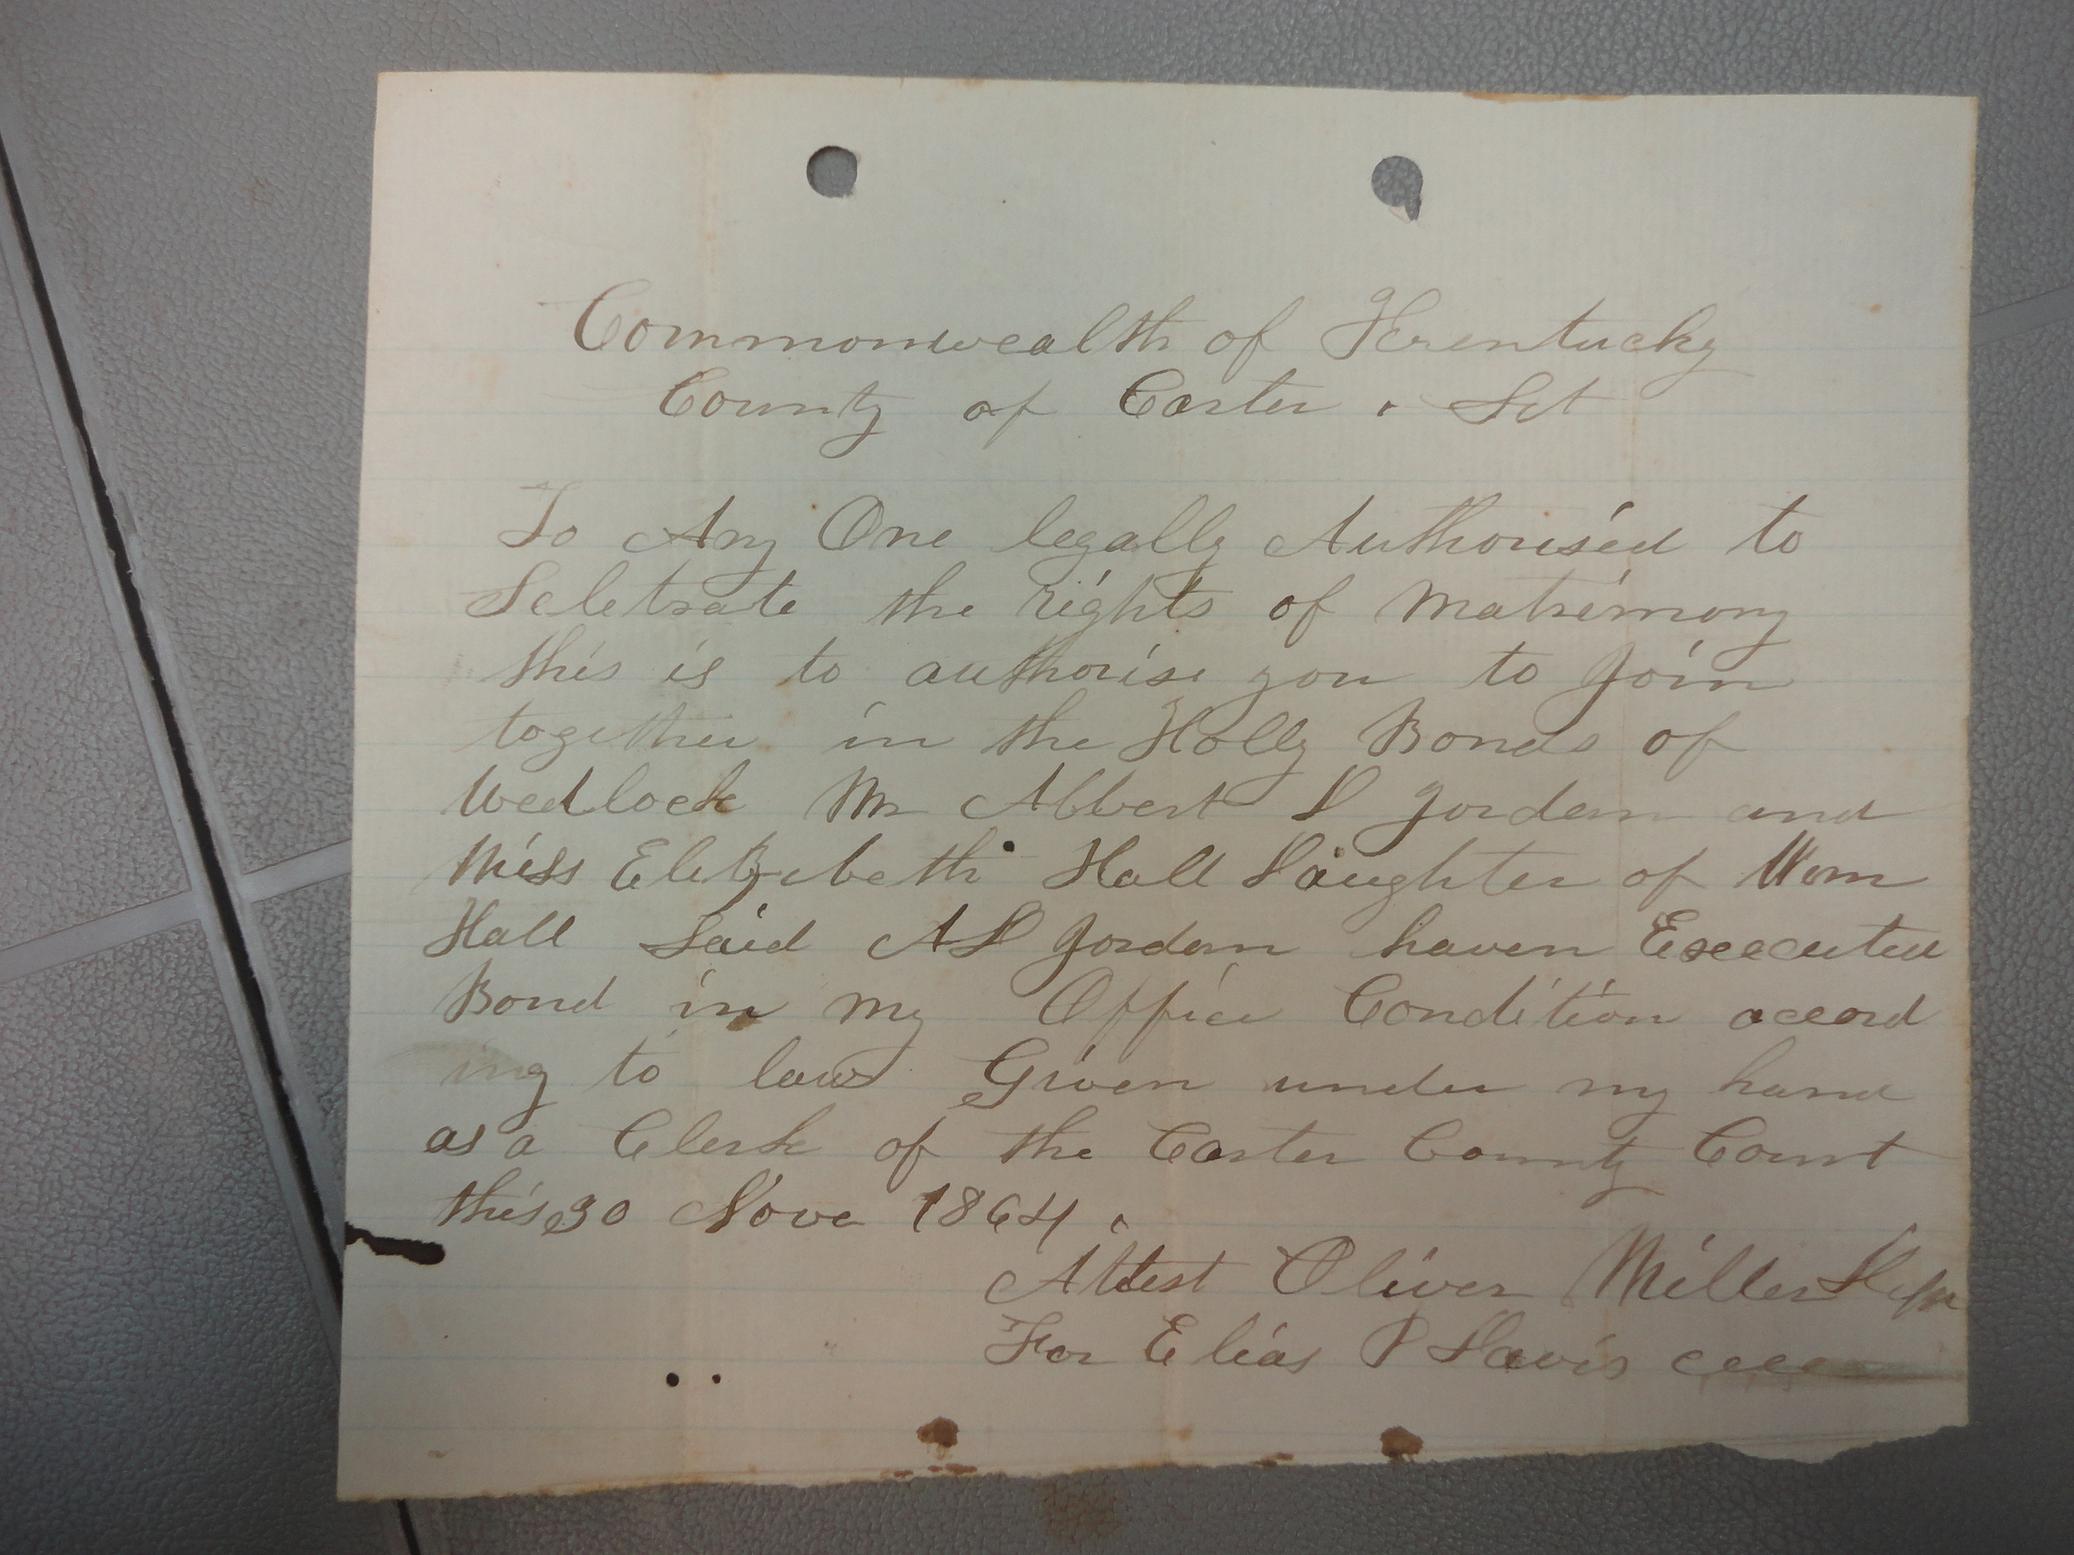 Commonwealth of Kentucky
County of Carter . Sct
To Any One legally Authorised to
Selebrate the rights of Matrimony
this is to authorise you to Join
together in the Holly Bonds of
Wedlock Mr Albert D Jordan and
Miss Elizabeth Hall Daughter of Wm
Hall Said A D Jordan haven Exeecuted
Bond in my Office Condition accord
ing to law Given under my hand
as a Clerk of the Carter County Court
this 30 Nove 1864 .
Attest Oliver Miller
For Elias P Davis